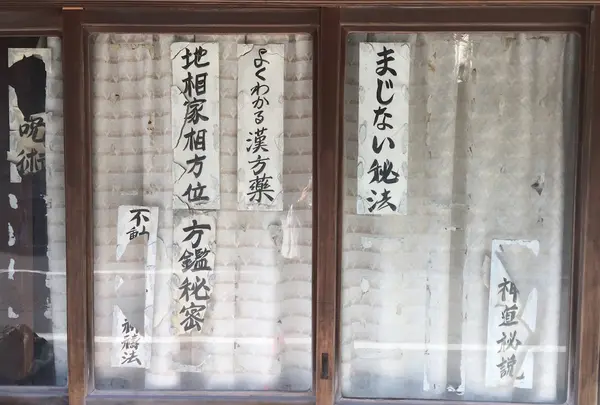 まじない秘法
神道秘説
よくわかる漢方薬
地相家相方位
方鑑秘密
不動
祈祷法
呪術